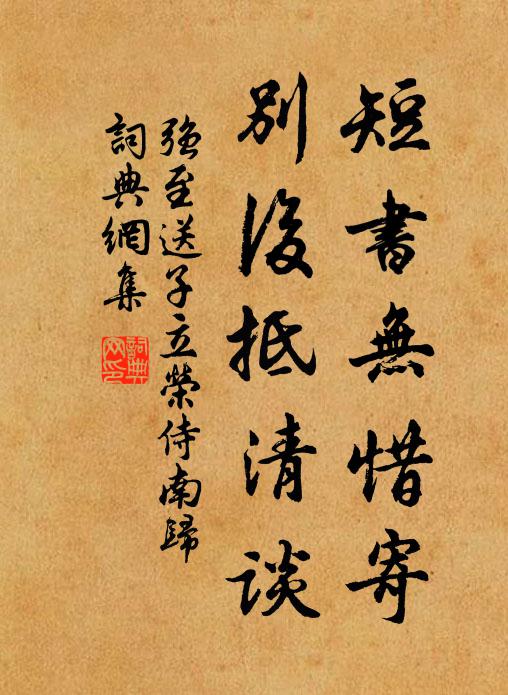 短書無惜寄
別後抵清談
強至送子立榮侍南歸
詞典網集
詞典
网印